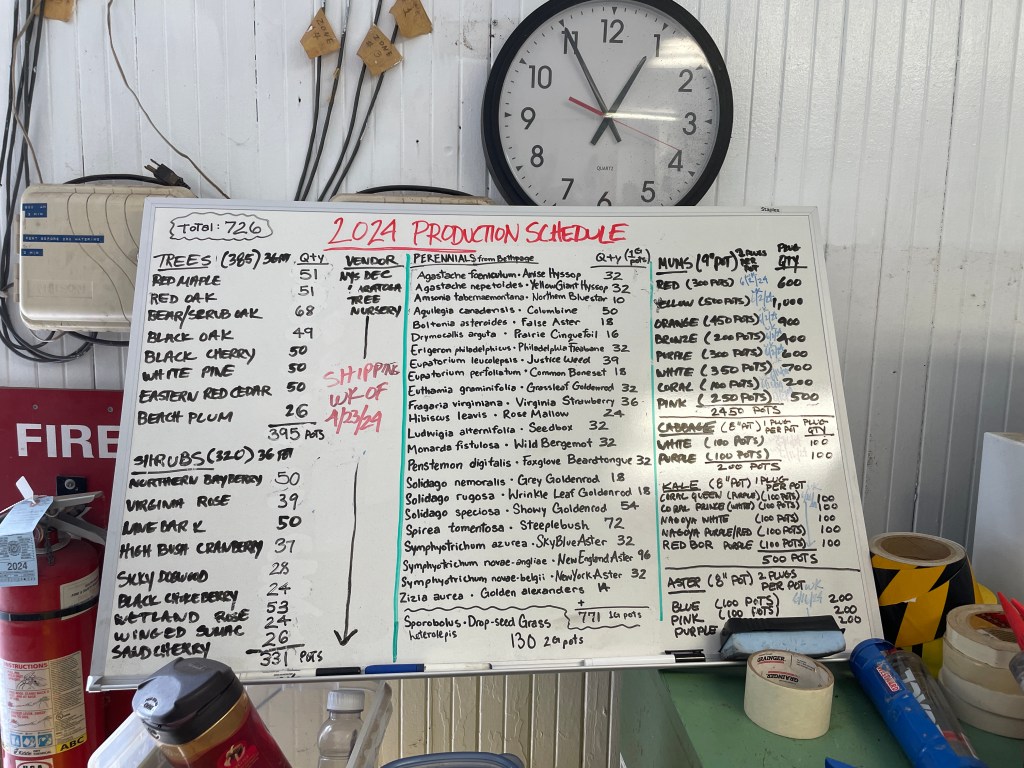 12
11
1
10
2
9
3
8
4
7
5
6
QUARTZ
Staples
TOTAL: 726
2024 PRODUCTION SCHEDULE
TREES (385) 36 POT QTY
RED MAPLE 51
RED OAK 51
BEAR/SCRUB OAK 68
BLACK OAK 49
BLACK CHERRY 50
WHITE PINE 50
EASTERN RED CEDAR 50
BEACH PLUM 26
395 POTS
SHRUBS (320) 36 POT
NORTHERN BAYBERRY 50
VIRGINIA ROSE 39
NINEBARK 50
HIGH BUSH CRANBERRY 37
SILKY DOGWOOD 28
BLACK CHOKEBERRY 24
WETLAND ROSE 53
WINGED SUMAC 24
SAND CHERRY 26
331 POTS
VENDOR
NYS DEC
SARATOGA
TREE
NURSERY
SHIPPING
WK OF
4/23/24
PERENNIALS from Bethpage Qty (1G pots)
Agastache foeniculum • Anise Hyssop 32
Agastache nepetoides • Yellow Giant Hyssop 32
Amsonia tabernaemontana • Northern Bluestar 10
Aquilegia canadensis • Columbine 50
Boltonia asteroides • False Aster 18
Drymocallis arguta • Prairie Cinquefoil 16
Erigeron philadelphicus • Philadelphia Fleabane 32
Eupatorium leucolepis • Justice Weed 39
Eupatorium perfoliatum • Common Boneset 18
Euthamia graminifolia • Grassleaf Goldenrod 32
Fragaria virginiana • Virginia Strawberry 36
Hibiscus leavis • Rose Mallow 24
Ludwigia alternifolia • Seedbox 32
Monarda fistulosa • Wild Bergemot 32
Penstemon digitalis • Foxglove Beardtongue 32
Solidago nemoralis • Grey Goldenrod 18
Solidago rugosa • Wrinkle Leaf Goldenrod 18
Solidago speciosa • Showy Goldenrod 54
Spirea tomentosa • Steeplebush 72
Symphyotrichum azurea • Sky Blue Aster 32
Symphyotrichum novae-angliae • New England Aster 96
Symphyotrichum novae-belgii • New York Aster 32
Zizia aurea • Golden alexanders 14
+
771 1G pots
Sporobolus • Drop-seed Grass
heterolepis
130 2G pots
MUMS (9" POT) 2 PLUGS PER POT PLUG QTY
RED (300 POTS) 600
YELLOW (500 POTS) 1,000
ORANGE (450 POTS) 900
BRONZE (200 POTS) 400
PURPLE (300 POTS) 600
WHITE (350 POTS) 700
CORAL (100 POTS) 200
PINK (250 POTS) 500
2450 POTS
CABBAGE (8" POT) 1 PLUG PER POT PLUG QTY
WHITE (100 POTS) 100
PURPLE (100 POTS) 100
200 POTS
KALE (8" POT) 1 PLUG PER POT
CORAL QUEEN (PURPLE) (100 POTS) 100
CORAL PRINCE (WHITE) (100 POTS) 100
NAGOYA WHITE (100 POTS) 100
NAGOYA PURPLE/RED (100 POTS) 100
RED BOR PURPLE (100 POTS) 100
500 POTS
ASTER (8" POT) 2 PLUGS PER POT
BLUE (100 POTS) 200
PINK (100 POTS) 200
PURPLE 200
FIRE
2024
INSTRUCTIONS
ABC
GRAINGER